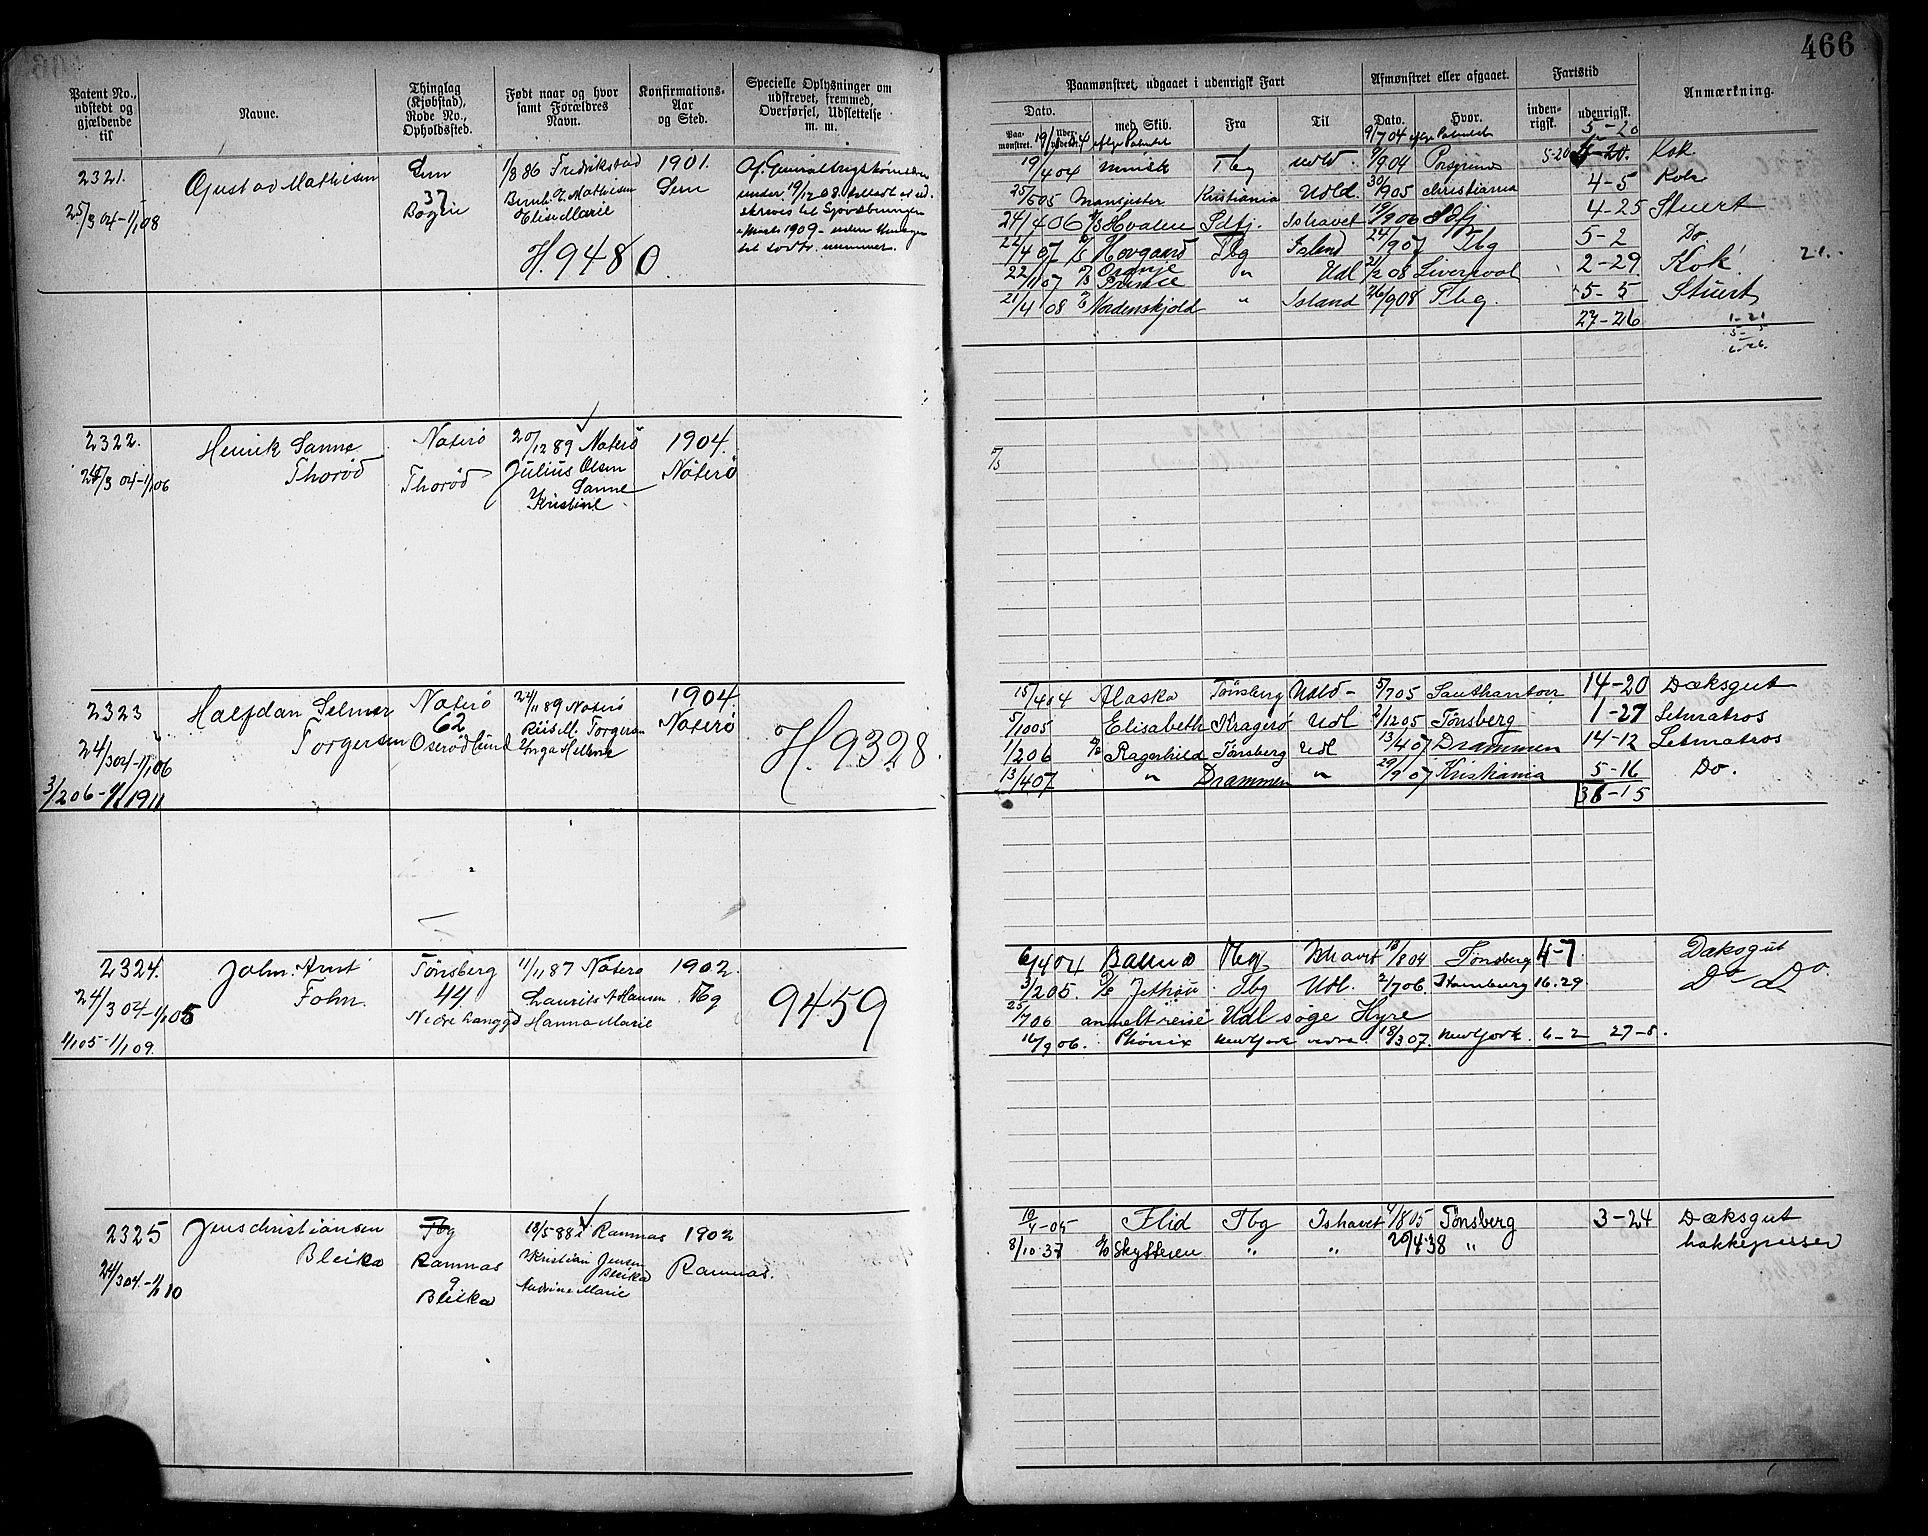 466
Patent No., udstedt og gjældende til
Navne.
Thinglag (Kjøbstad), Rode No., Opholdssted.
Født naar og hvor samt Forældres Navn.
Konfirmations-Aar og Sted.
Specielle Oplysninger om udskrevet, fremmed, Overførsel, Udslettelse m. m.
Paamønstret, udgaaet i udenrigsk Fart
Afmønstret eller afgaaet.
Fartstid
Anmærkning.
Dato.
Paa-mønstret.
med Skib.
Fra
Til
Dato.
Hvor.
inden-rigsk.
udenrigsk.
9/7 04
5-20
2321.
25/3 04-1/1 08
Gustav Mathisen
Sem
37
Bogen
1/8 86 Fredrikstad
Bernh. E. Mathisen
Elise Marie
H. 9480
1901.
Sem
19/4 04 Minisk Tbg Udld. 9/9 04 Porsgrund 5-20 Kok
25/5 05 Mantjister Kristiania Udld. 30/9 05 Christiania 4-5 Kok
24/4 06 Hvalen Sdfj. Ishavet 19/9 06 Sdfj 4-25 Stuert
22/4 07 Hovgaard Tbg Island 24/9 07 Tbg 5-2 Do
22/11 07 Oranje Prince " Udl 21/2 08 Liverpool 2-29 Kok
21/4 08 Nordenskjold " Island 26/9 08 Tbg. 5-5 Stuert
27-26
1-21
5-5
6-26.
2322.
24/3 04-1/1 06
Henrik Sanne
Thorød
Nøterø
Thorød
20/12 89 Nøterø
Julius Olsen
Sanne
Kristine
1904.
Nøterø
2323
24/3 04-1/1 06
3/2 06-1/1 1911
Halfdan Selmer
Torgersen
Nøterø
62
Oserødlund
24/11 89 Nøterø
Torgersen
Inga Helene
1904.
Nøterø
H. 9328.
15/4 04 Alaska Tønsberg Udld- 5/7 05 Southamton 14-20 Dæksgut
5/10 05 Elisabeth Kragerø Udl 2/12 05 Tønsberg 1-27 Letmatros
1/2 06 Ragnhild Tønsberg Udl 13/4 07 Drammen 14-12 Letmatros
13/4 07 " Drammen " 29/9 07 Kristiania 5-16 Do.
36-15
2324.
24/3 04-1/1 05
1/1 05-1/1 09.
John. Arnt
Fohn.
Tønsberg
44
Nedre Langgd
11/11 87 Nøterø
Laurits A Hansen
Hanna Marie
1902.
Tbg
9459
6/4 04 Tbg Ishavet 18/8 04 Tønsberg 4-7 Daksgut
3/2 05 Tbg Udl. 2/7 06. Hamburg 16.29 Do Do
25/7 06 anmelt reise Udl søge Hyre
16/9 06. Phønix NewYork 18/3 07. NewYork. 6-2 27-8.
2325
24/3 04.-1/1 10
Jens Christiansen
Bleika
Tbg
Ramnæs
9
Bleika
18/5 88 Ramnæs
Kristian Jensen
Bleika
Andrine Marie
1902
Ramnæs.
10/4-05 Flid Tbg Ishavet 1/8 05 Tønsberg 3-24 Dæksgut
8/10 37 Skytteren " " 20/4 38 " hakkepisser